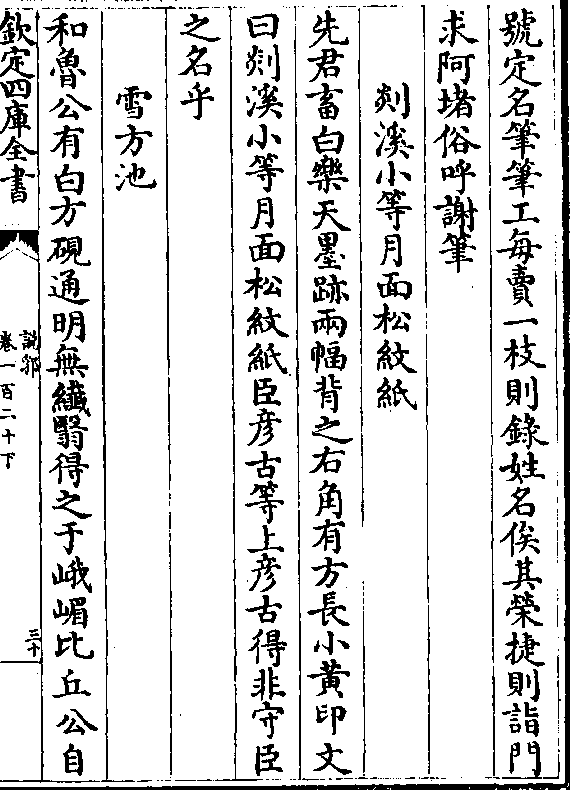 號定名筆筆工每賣一枝則錄姓名俟其榮捷則詣門
求阿堵俗呼謝筆
剡溪小等月面松紋紙
先君畜白樂天墨跡兩幅背之右角有方長小黃印文
曰剡溪小等月面松紋紙臣彦古等上彦古得非守臣
之名乎
雪方池
和魯公有白方硯通明無纎翳得之于峨嵋比丘公自
欽定四庫全書
說郛
卷一百二十下
三十